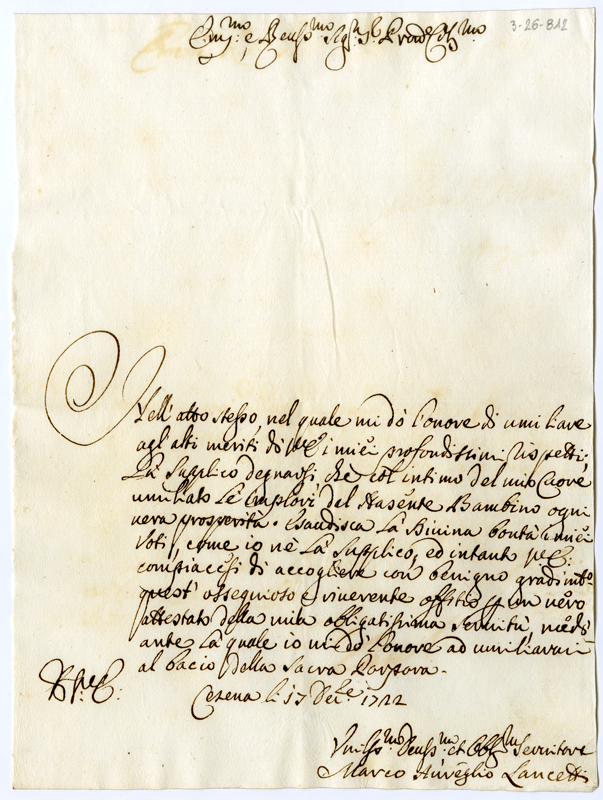 3-26-812
Em.mo e Reus.mo Sig.r Sr. Prõe Col.mo
Nell'atto stesso, nel quale mi dò l'onore di umiliare
agl'alti meriti di V.E. i miei profondissimi rispetti,
La supplico degnarsi, che col intimo del mio Cuore
umiliato Le implori dal Nascente Bambino ogni
vera prosperità. Esaudisca La Divina bontà i miei
Voti, come io nè La supplico, ed intanto V.E.
compiaccisi di accogliere con benigno gradim.to
quest'ossequioso e riverente offitio p un vero
attestato della mia obligatissima servitù, medi
ante La quale io mi dò l'onore ad umiliarmi
al bacio della Sacra Porpora.
D V.E.
Cesena li 17 Dec.re 1722
Umiliss.mo Deuss.mo et Obb.mo Servitore
Marco Aureglio Lancetti